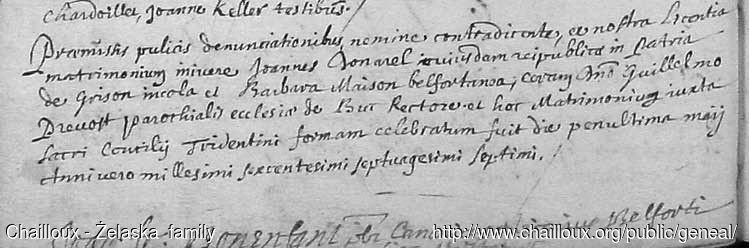 Chardoillet, Joanne Keller testibus.
Præmissis pulicis denunciationibus, nemine contradicente, ex nostra Licentia
matrimonium inivere Joannes Jonarel cuiusdam reipublicæ in Patria
de Grison incola et Barbara Maison belfortanoa, coram Dno Guillelmo
Prevost parochialis ecclesiæ de Buc Rectore et hoc Matrimonium iuxta
sacri Concilij Tridentini formam celebratum fuit die penultima maij
Anni vero millesimi sexcentesimi septuagesimi septimi.
Bonenfant Belforti
Chailloux - Żelaska family http://www.chailloux.org/public/geneal/